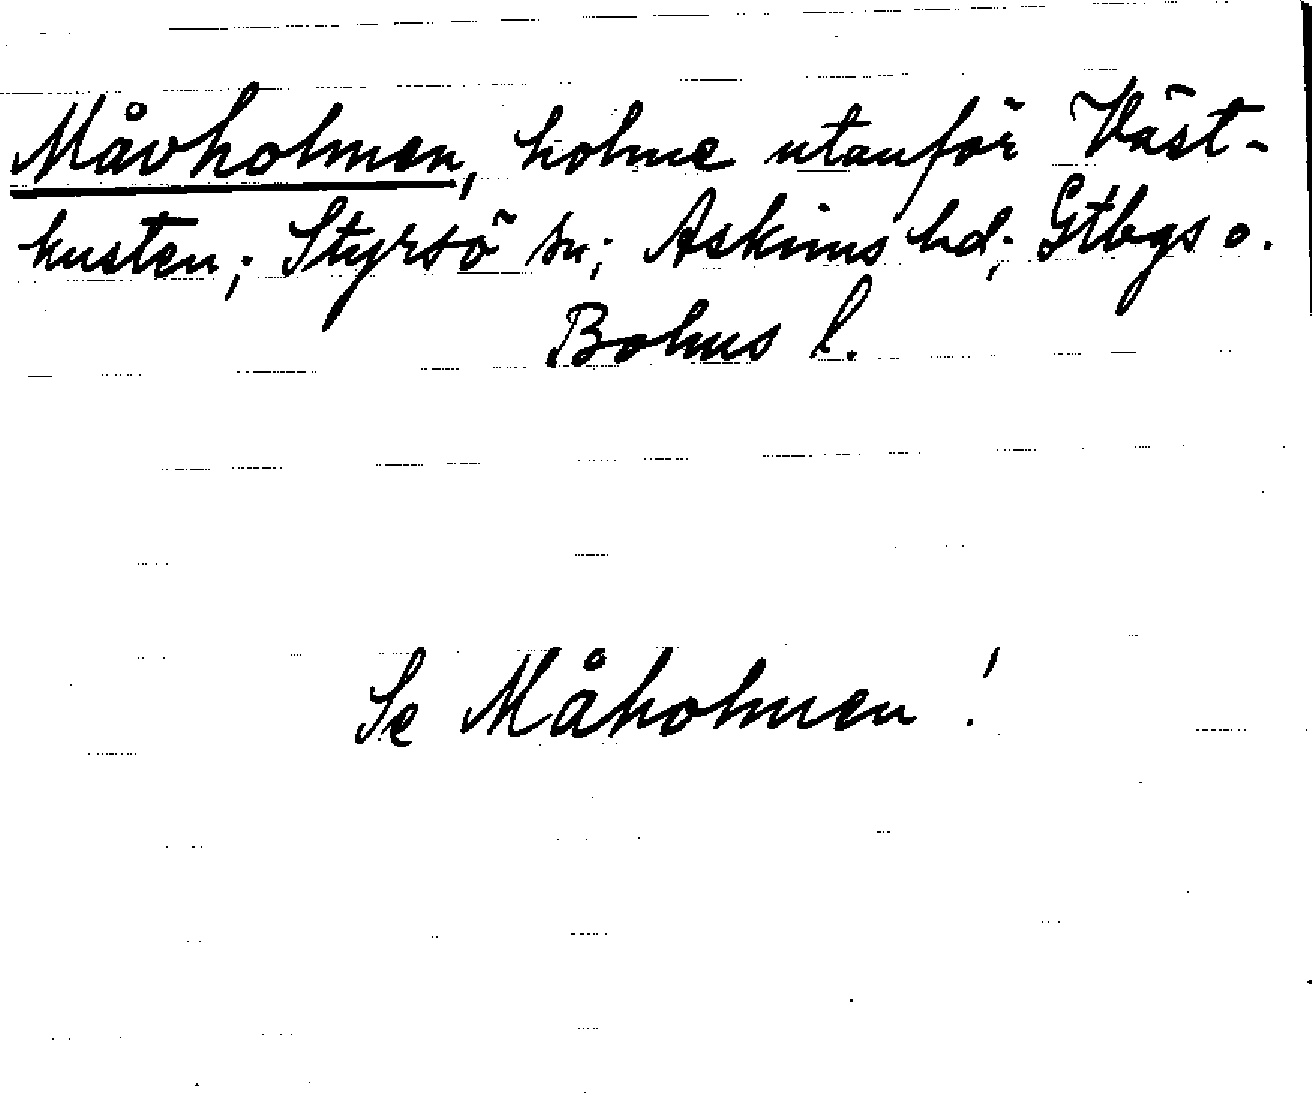 Måvholmen, holme utanför Väst-
kusten; Styrsö sn; Askims hd; Gtbgs o.
Bohus l.
Se Måholmen!